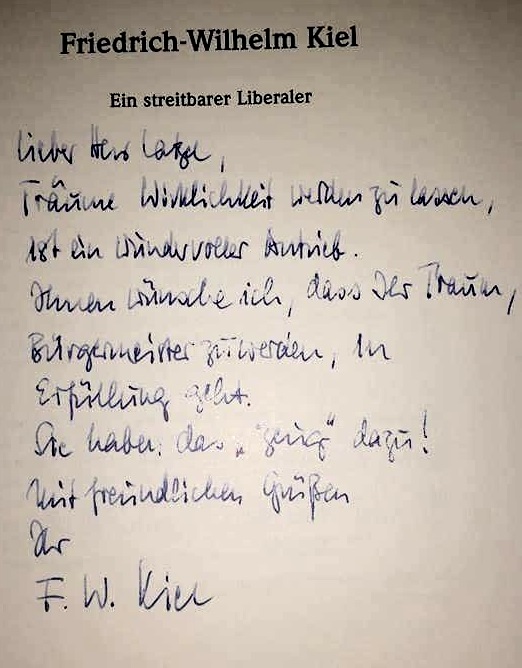 Friedrich-Wilhelm Kiel
Ein streitbarer Liberaler
Lieber Herr Latzel,
Träume Wirklichkeit werden zu lassen,
ist ein wundervoller Antrieb.
Ihnen wünsche ich, dass Ihr Traum,
Bürgermeister zu werden, in
Erfüllung geht.
Sie haben das „Zeug" dazu!
Mit freundlichen Grüßen
Ihr
F. W. Kiel